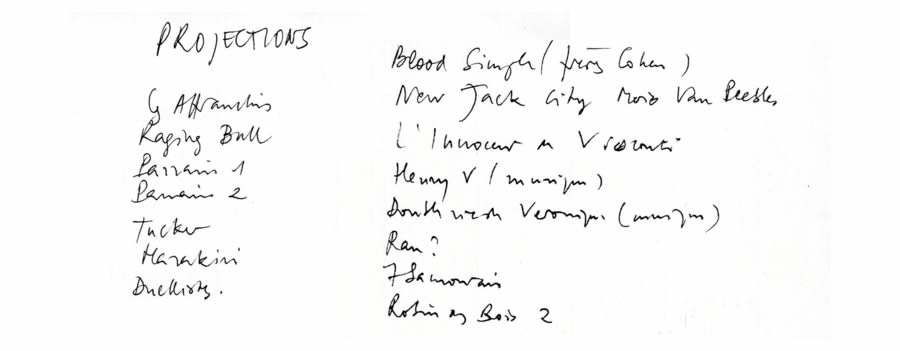 PROJECTIONS
Les Affranchis
Raging Bull
Parrain 1
Parrain 2
Tucker
Harakiri
Duellistes.
Blood Simple (frères Cohen)
New Jack City Mario Van Peebles
L'Innocent de Visconti
Henry V (musique)
Double vie de Veronique (musique)
Ran?
7 Samouraïs
Robin des Bois 2